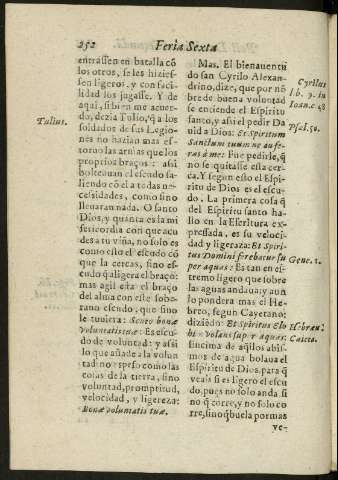 252 Feria Sexta
entrassen en batalla cõ
los otros, se les hizies-
sen ligeros, y con faci-
lidad los jugasse. Y de
aqui, si bien me acuer-
do, dezia Tulio, q̃ a los
soldados de sus Legio-
nes no hazian mas es-
torvo las armas que los
proprios braços: assi
bolteauan el escudo sa-
liendo cõ el a todas ne-
cessidades, como sino
lleuaran nada. O santo
Dios, y quanta es la mi
sericordia con que acu
des a tu viña, no solo es
como esto el escudo cõ
que la cercas, sino es-
cudo q̃ aligera el braço;
mas agil esta el braço
del alma con este sobe-
rano escudo, que sino
le tuuiera: Scuto bonæ
voluntatis tuæ: Es escu-
do de voluntad: y assi
lo que añade a la volun
tad no es peso como las
cosas de la tierra, sino
voluntad, promptitud,
velocidad, y ligereza:
Bonæ voluntatis tuæ.
Tulius.
Mas. El bienauenti
do san Cyrilo Alexan-
drino, dize, que por nõ
bre de buena voluntad
se entiende el Espiritu
santo, y assi el pedir Da
uid a Dios: Et Spiritum
Sanctum tuum ne aufe-
ras à me: Fue pedirle, q̃
no se quitasse esta cer-
ca. Y segun esto el Espi-
ritu de Dios es el escu-
do. La primera cosa q̃
del Espiritu santo ha-
llo en la Escritura ex-
pressada, es su veloci-
dad y ligereza: Et Spiri-
tus Domini ferebatur su
per aquas: Es tan en es-
tremo ligero que sobre
las aguas andaua; y aun
lo pondera mas el He-
breo, segun Cayetano;
diziẽdo: Et Spiritus Elo
hi volans super aquas:
Encima de aq̃llos abis-
mos de agua bolaua el
Espiritu de Dios, para q̃
veais si es ligero el escu
do, pues no solo anda si
no q̃ corre, y no solo co
rre, sino q̃ buela por mas
ve-
Cyrillus
lib. 9. in
Ioan. c. 48
Psal. 50.
Gene. 1.
Hebrau.
Caieta.